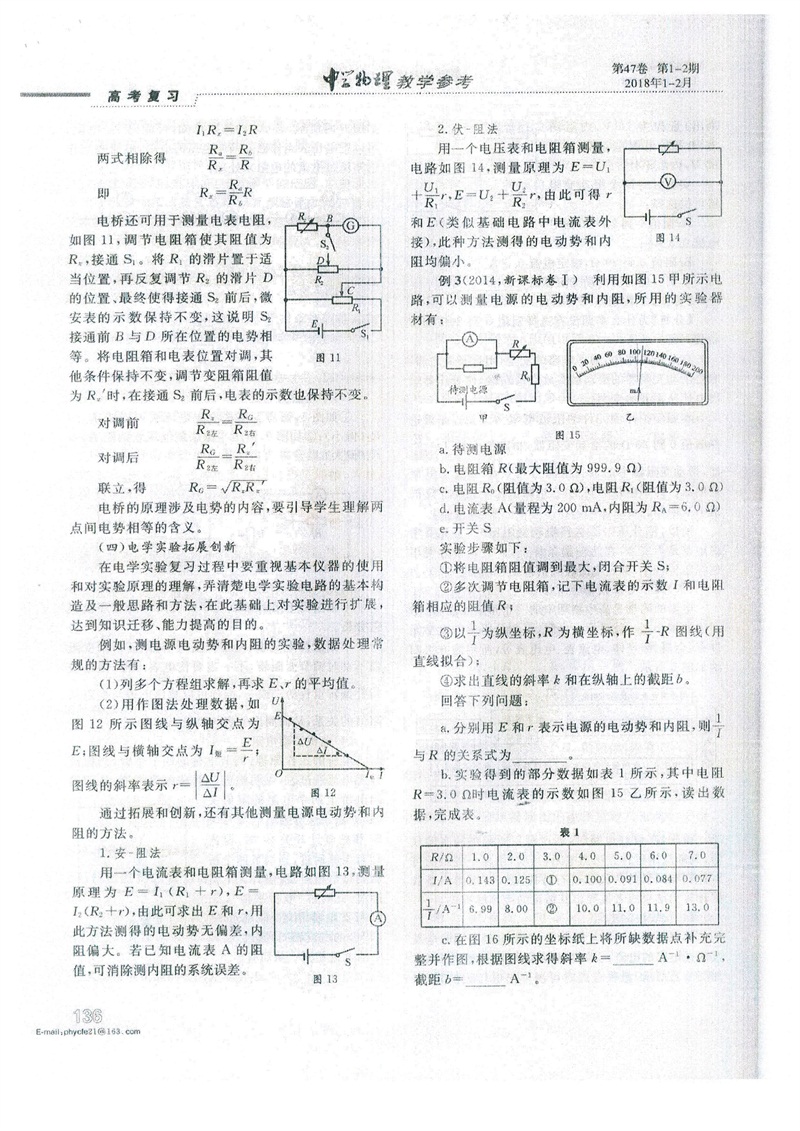 高考复习
中学物理教学参考
第47卷 第1-2期
2018年1-2月
I₁Rₓ=I₂R
两式相除得 Rₐ/Rₓ=R_b/R
即 Rₓ=Rₐ/R_b R
电桥还可用于测量电表电阻,
如图 11,调节电阻箱使其阻值为
R₀,接通 S₁。将 R₁ 的滑片置于适
当位置,再反复调节 R₂ 的滑片 D
的位置、最终使得接通 S₂ 前后,微
安表的示数保持不变,这说明 S₂
接通前 B 与 D 所在位置的电势相
等。将电阻箱和电表位置对调,其
他条件保持不变,调节变阻箱阻值
R B G
S₂
D
R₂
C
R₁
E S₁
图 11
时,在接通 S₂ 前后,电表的示数也保持不变。
对调前
对调后
联立,得
电桥的原理涉及电势的内容,要引导学生理解两
点间电势相等的含义。
(四)电学实验拓展创新
在电学实验复习过程中要重视基本仪器的使用
和对实验原理的理解,弄清楚电学实验电路的基本构
造及一般思路和方法,在此基础上对实验进行扩展,
达到知识迁移、能力提高的目的。
例如,测电源电动势和内阻的实验,数据处理常
规的方法有:
(1)列多个方程组求解,再求 E、r 的平均值。
(2)用作图法处理数据,如
图 12 所示图线与纵轴交点为
E;图线与横轴交点为 I短=E/r;
图线的斜率表示 r=|ΔU/ΔI|。
U
E
ΔU
ΔI
O I
图 12
通过拓展和创新,还有其他测量电源电动势和内
阻的方法。
1.安-阻法
用一个电流表和电阻箱测量,电路如图 13,测量
原理为 E=I₁(R₁+r),E=
I₂(R₂+r),由此可求出 E 和 r,用
此方法测得的电动势无偏差,内
阻偏大。若已知电流表 A 的阻
值,可消除测内阻的系统误差。
A
S
图 13
136
E-mail:phycfe21@163.com
2.伏-阻法
用一个电压表和电阻箱测量,
电路如图 14,测量原理为 E=U₁
+U₁/R₁ r,E=U₂+U₂/R₂ r,由此可得 r
和 E(类似基础电路中电流表外
接),此种方法测得的电动势和内
阻均偏小。
V
S
图 14
例 3(2014,新课标卷Ⅰ) 利用如图 15 甲所示电
路,可以测量电源的电动势和内阻,所用的实验器
材有:
A
R
R₀
待测电源
S
甲
0 20 40 60 80 100 120 140 160 180 200
mA
乙
图 15
a.待测电源
b.电阻箱 R(最大阻值为 999.9 Ω)
c.电阻 R₀(阻值为 3.0 Ω),电阻 R₁(阻值为 3.0 Ω)
d.电流表 A(量程为 200 mA,内阻为 R_A=6.0 Ω)
e.开关 S
实验步骤如下:
①将电阻箱阻值调到最大,闭合开关 S;
②多次调节电阻箱,记下电流表的示数 I 和电阻
箱相应的阻值 R;
③以1/I为纵坐标,R 为横坐标,作 1/I-R 图线(用
直线拟合);
④求出直线的斜率 k 和在纵轴上的截距 b。
回答下列问题:
a.分别用 E 和 r 表示电源的电动势和内阻,则1/I
与 R 的关系式为______。
b.实验得到的部分数据如表 1 所示,其中电阻
R=3.0 Ω时电流表的示数如图 15 乙所示,读出数
据,完成表。
表 1
R/Ω 1.0 2.0 3.0 4.0 5.0 6.0 7.0
I/A 0.143 0.125 ① 0.100 0.091 0.084 0.077
1/I/A⁻¹ 6.99 8.00 ② 10.0 11.0 11.9 13.0
c.在图 16 所示的坐标纸上将所缺数据点补充完
整并作图,根据图线求得斜率 k=____ A⁻¹·Ω⁻¹,
截距 b=____ A⁻¹。